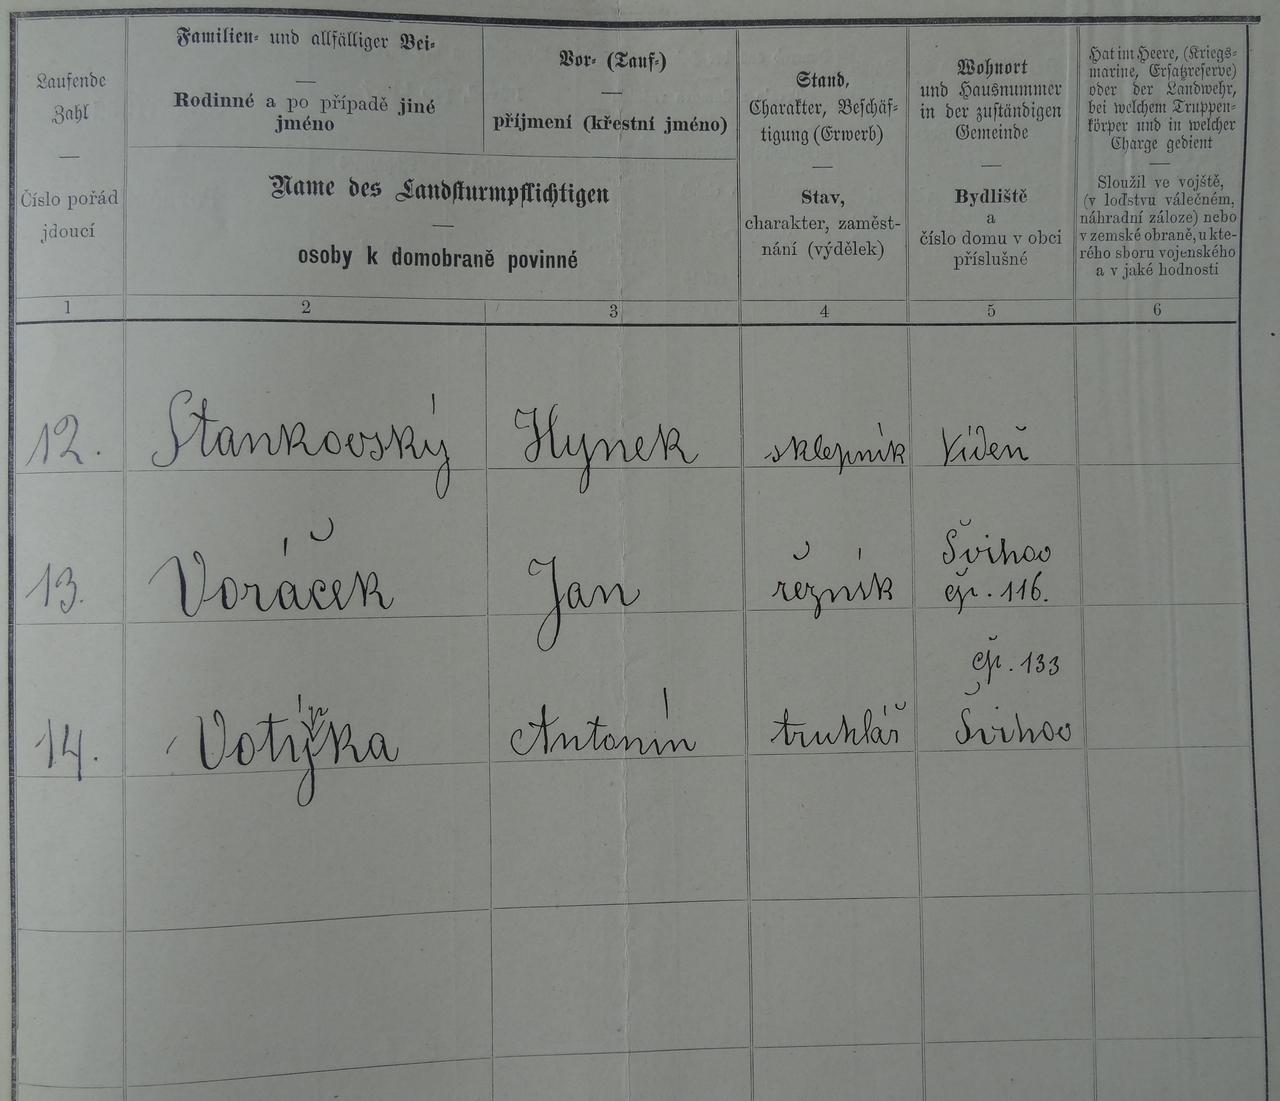 Laufende
Zahl
—
Číslo pořád
jdoucí
Familien- und allfälliger Bei-
—
Rodinné a po případě jiné
jméno
Vor- (Tauf-)
—
příjmení (křestní jméno)
Name des Landsturmpflichtigen
—
osoby k domobraně povinné
Stand,
Charakter, Beschäf-
tigung (Erwerb)
—
Stav,
charakter, zaměst-
nání (výdělek)
Wohnort
und Hausnummer
in der zuständigen
Gemeinde
—
Bydliště
a
číslo domu v obci
příslušné
Hat im Heere, (Kriegs-
marine, Ersatzreserve)
oder der Landwehr,
bei welchem Truppen-
körper und in welcher
Charge gedient
—
Sloužil ve vojště,
(v loďstvu válečném,
náhradní záloze) nebo
v zemské obraně, u kte-
rého sboru vojenského
a v jaké hodnosti
1 2 3 4 5 6
12. Stankovský Hynek sklepník Vídeň
13. Voráček Jan řezník Švihov
čp. 116.
čp. 133
14. Antonín truhlář Švihov